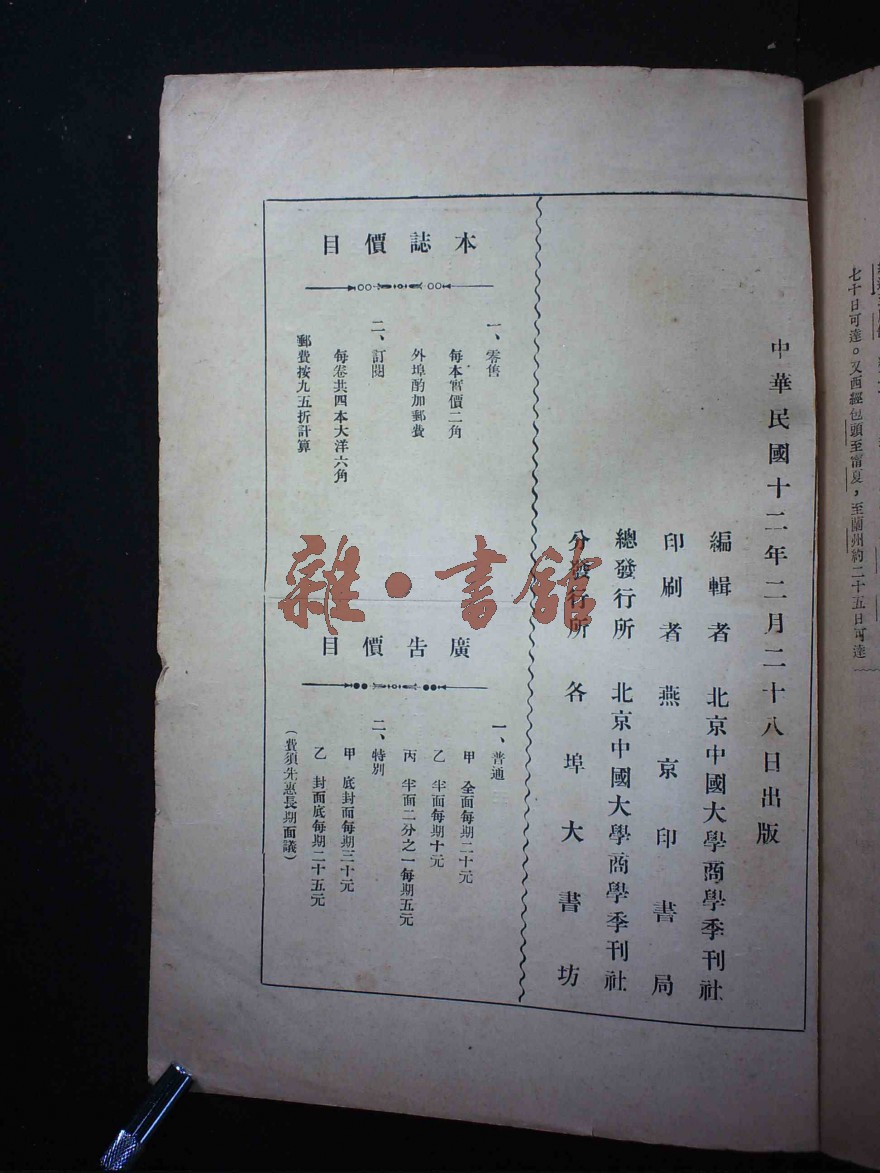 七十日可達。又西經包頭至甯夏，至蘭州約二十五日可達
中華民國十二年二月二十八日出版
編輯者　北京中國大學商學季刊社
印刷者　燕京印書局
總發行所　北京中國大學商學季刊社
分發行所　各埠大書坊
本誌價目
一、零售
每本實價二角
外埠酌加郵費
二、訂閱
每卷共四本大洋六角
郵費按九五折計算
雜·書館
廣告價目
一、普通
甲　全面每期二十元
乙　半面每期十元
丙　半面二分之一每期五元
二、特別
甲　底封面每期三十元
乙　封面底每期二十五元
（費須先惠長期面議）